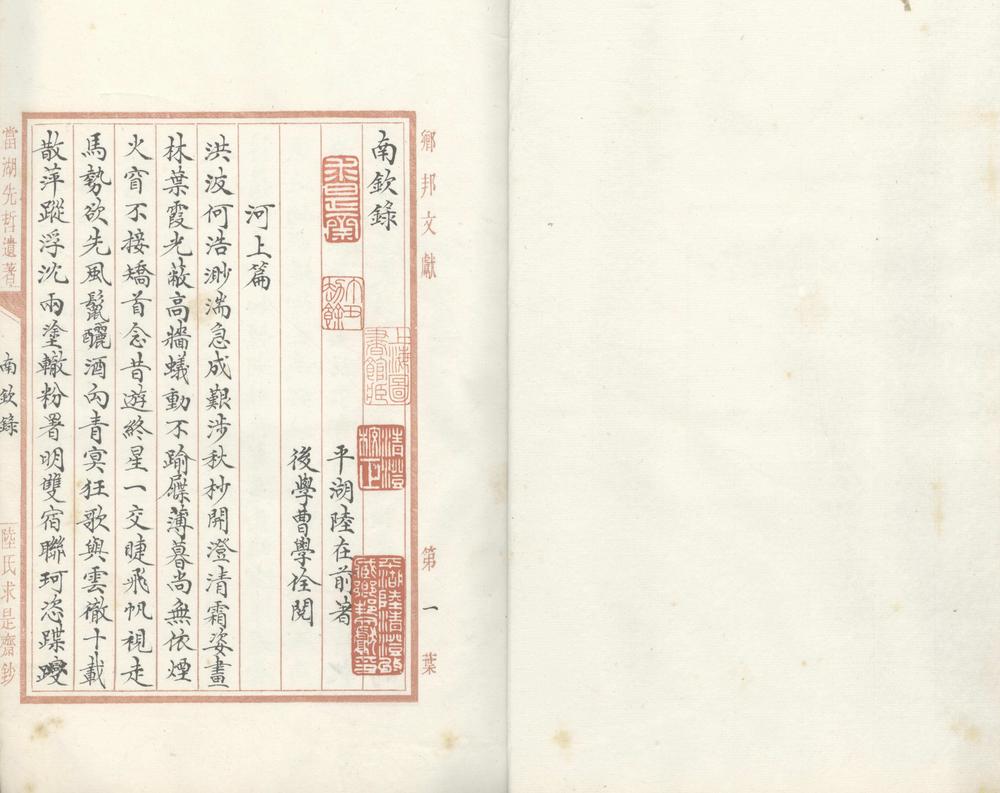 鄉邦文獻
第一葉
南欽錄
平湖陸在前著
後學曹學佺閱
河上篇
洪波何浩渺湍急成艱涉秋杪開澄清霜姿畫
林葉霞光蔽高牆蟻動不踰屧薄暮尚無依煙
火窅不接矯首念昔遊終星一交睫飛帆視走
馬勢欲先風鬣釃酒向青寞狂歌與雲徹十載
散萍蹤浮沈兩塗轍粉署明雙宿聯珂恣蹀躞
當湖先哲遺著
南欽錄
陸氏求是齋鈔
求是齋
上海圖書館藏
清澄校正
平湖陸清澄攷藏鄉邦文獻印